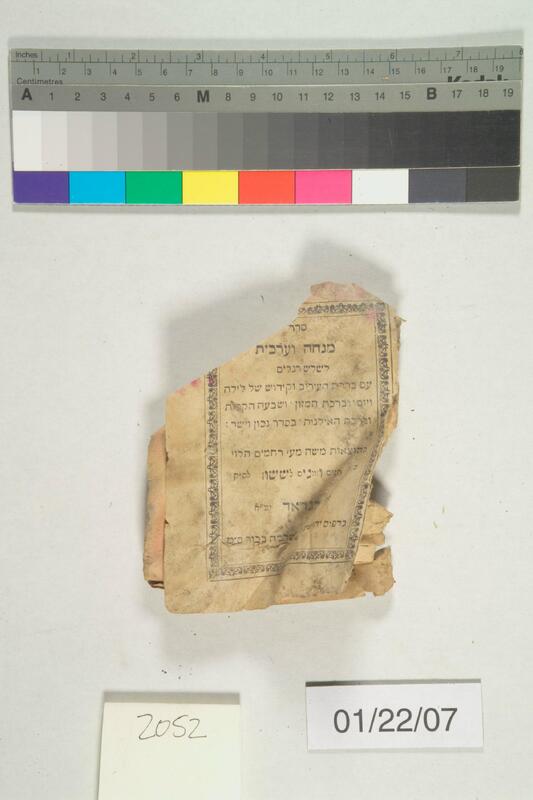 Inches 1 2 3 4 5 6 7 8
Centimetres 1 2 3 4 5 6 7 8 9 10 11 12 13 14 15 16 17 18 19
Kodak
A 1 2 3 4 5 6 M 8 9 10 11 12 13 14 15 B 17 18 19
סדר
מנחה וערבית
לשלש רגלים
עם ברכת העירוב וקידוש של לילה
ויום וברכת המזון ושבעה הקפות
וברכת האילנות בסדר נכון וישר:
משה מע׳ רחמים הלוי
בגדאד יע״א
2052
01/22/07